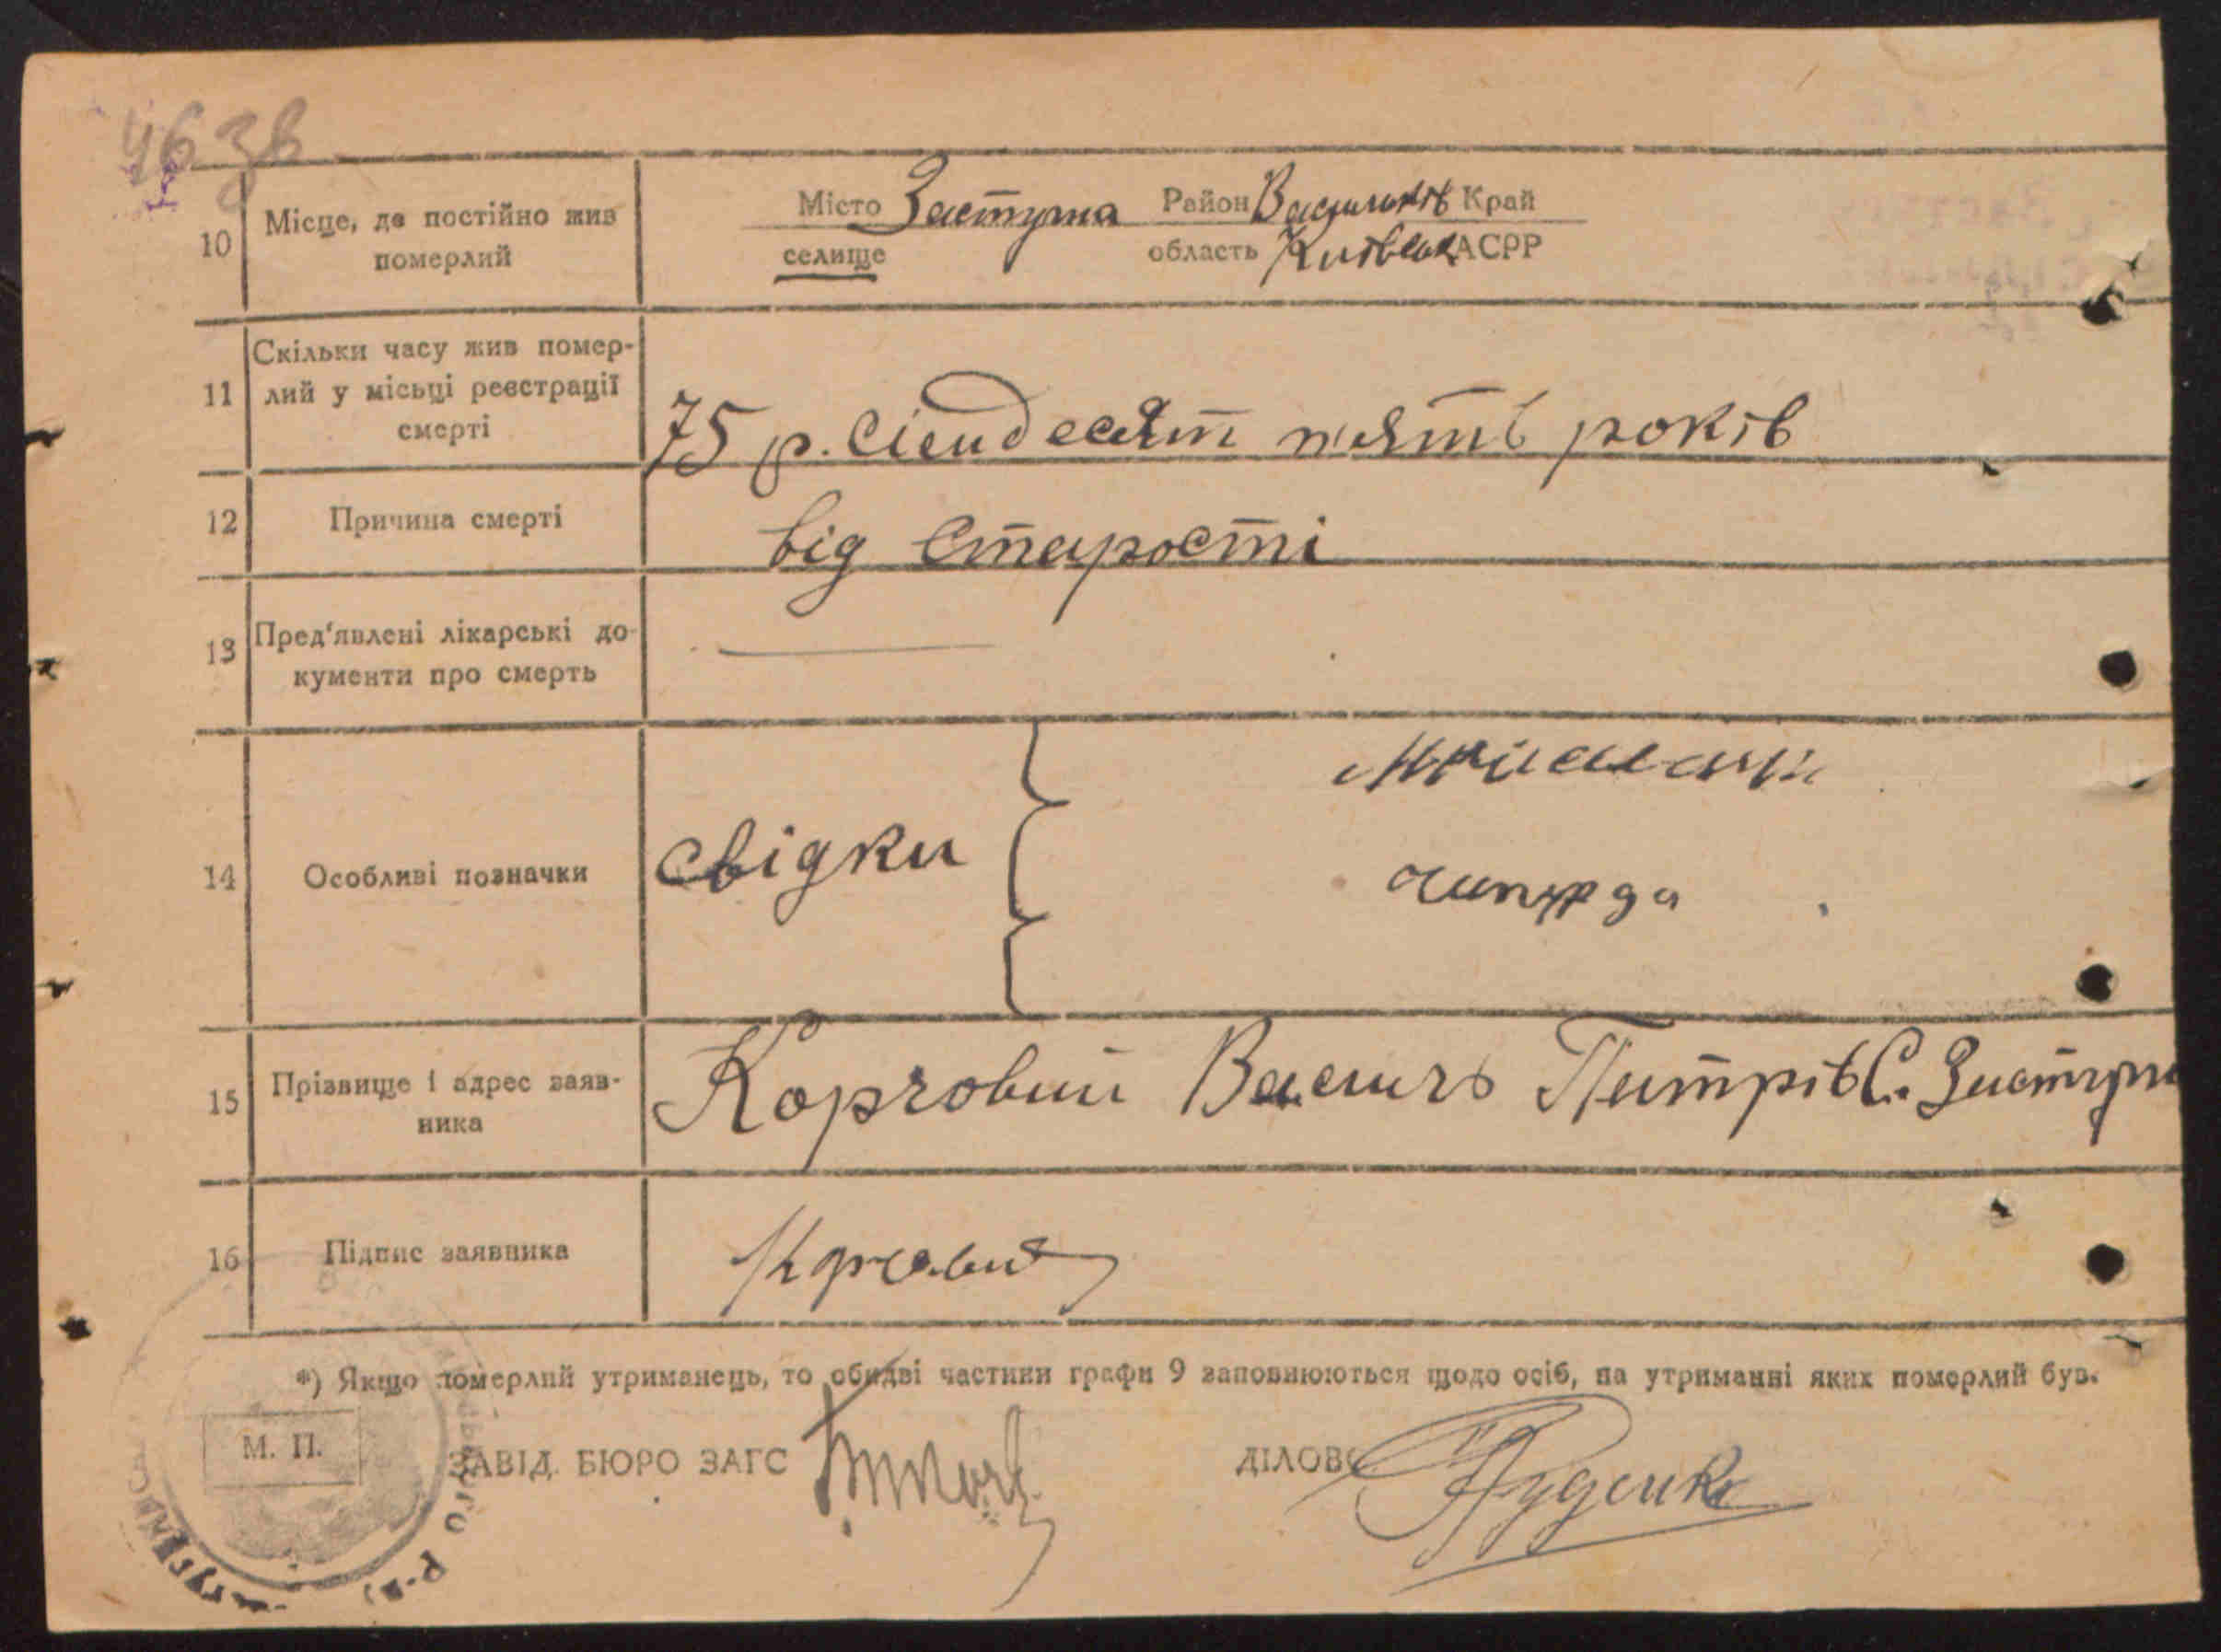 46 зв
10 Місце, де постійно жив померлий
Місто Застугна Район Васильків Край
селище область Київськ АСРР
11 Скільки часу жив помер-
лий у місьці реєстрації
смерті
75 р. Сімдесят пʼять років
12 Причина смерті
від старості
13 Пред'явлені лікарські до-
кументи про смерть
14 Особливі позначки
свідки
15 Прізвище і адрес заяв-
ника
Корчовий Василь Питрів С. Застугн
16 Підпис заявника
Корчовий
*) Якщо померлий утриманець, то обидві частини графи 9 заповнюються щодо осіб, на утриманні яких померлий був.
М. П.
ЗАВІД. БЮРО ЗАГС
ДІЛОВ